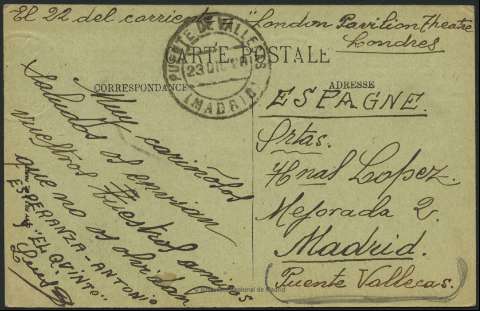 El 22 del corriente "London Pavilion Theatre
Londres
CARTE POSTALE
PUENTE DE VALLECAS
23 DIC
(MADRID)
CORRESPONDANCE
ADRESSE
Muy cariñosos
saludos os envian
vuestros amigos
que no os olvidan
ESPERANZA - ANTONIO
"EL QUINTO"
ESPAGNE.
Srtas.
Hnas Lopez.
Mejorada 2.
Madrid.
Puente Vallecas.